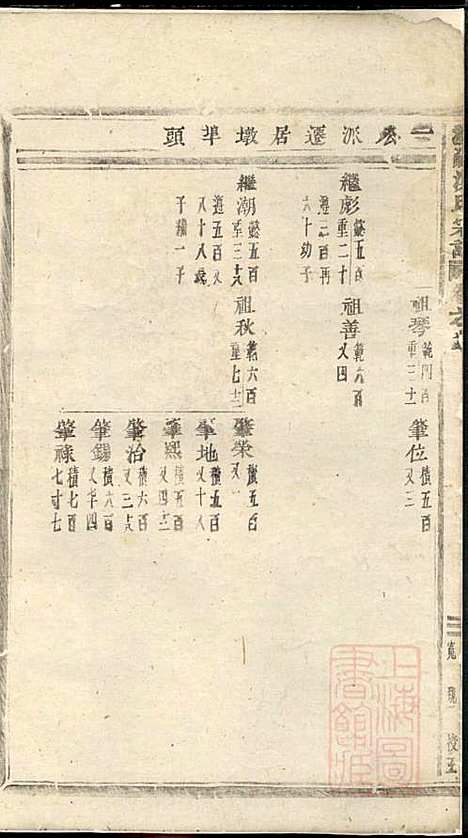 二公派遷居墩埠頭
祖琴
範八百
重三十一
肇位
積五百
又三
繼彪
懿五百
重二十
遵三百再
六十幼子
祖善
範六百
又四
繼潮
懿五百
系三十八
遵五百又
八十八歲
子繼一子
祖秋
範六百
重七十三
肇榮
積五百
又一
肇地
積五百
又十八
肇熙
積五百
又四三
肇治
積六百
又三十八
肇錫
積六百
又五十四
肇祿
積七百
七十七
上海圖書館藏